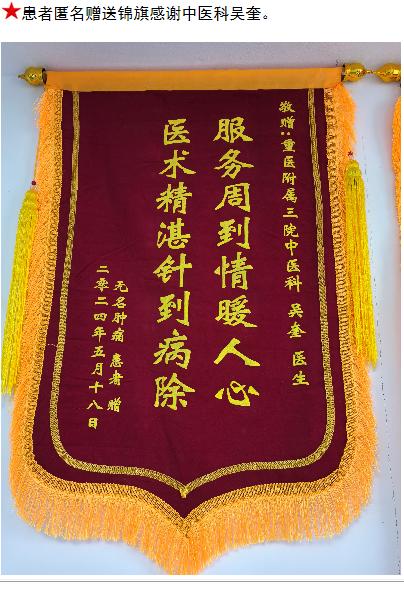 ★患者匿名赠送锦旗感谢中医科吴奎。
敬赠:重医附属三院中医科 吴奎 医生
服务周到情暖人心
医术精湛针到病除
无名肿痛 患者 赠
二零二四年五月十八日